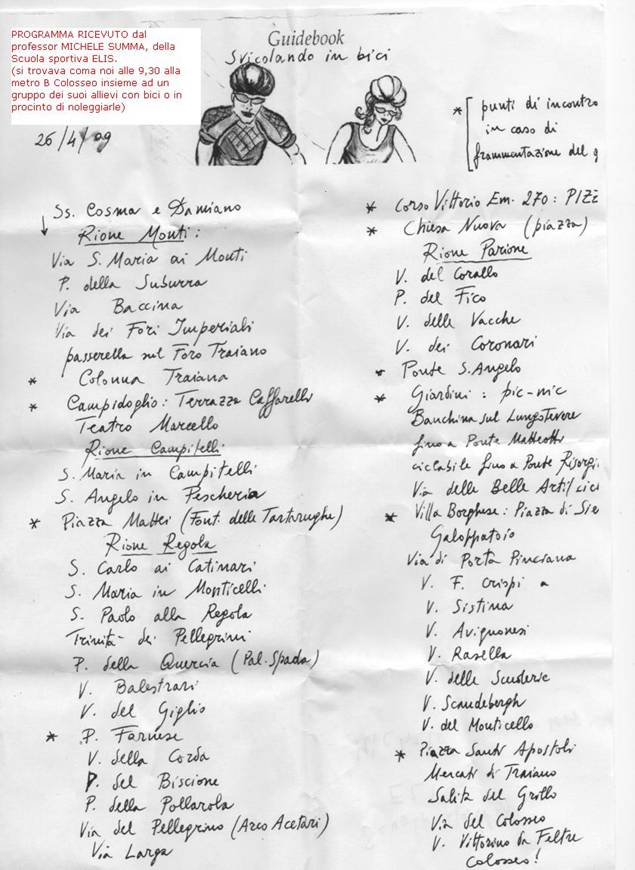 PROGRAMMA RICEVUTO dal
professor MICHELE SUMMA, della
Scuola sportiva ELIS.
(si trovava coma noi alle 9,30 alla
metro B Colosseo insieme ad un
gruppo dei suoi allievi con bici o in
procinto di noleggiarle)
Guidebook
Svicolando in bici
26/4/09
* [ punti di incontro
in caso di
frammentazione del g
Ss. Cosma e Damiano
Rione Monti:
Via S. Maria ai Monti
P. della Suburra
Via Baccina
Via dei Fori Imperiali
passerella sul Foro Traiano
* Colonna Traiana
* Campidoglio: Terrazza Caffarelli
Teatro Marcello
Rione Campitelli
S. Maria in Campitelli
S. Angelo in Pescheria
* Piazza Mattei (Font. delle Tartarughe)
Rione Regola
S. Carlo ai Catinari
S. Maria in Monticelli
S. Paolo alla Regola
Trinità dei Pellegrini
P. della Quercia (Pal. Spada)
V. Balestrari
V. del Giglio
* P. Farnese
V. della Corda
P. del Biscione
P. della Pollarola
Via del Pellegrino (Arco Acetari)
Via Larga
* Corso Vittorio Em. 270: PIZZ
* Chiesa Nuova (piazza)
Rione Parione
V. del Corallo
P. del Fico
V. delle Vacche
V. dei Coronari
* Ponte S. Angelo
* Giardini: pic-nic
Banchina sul Lungotevere
fino a Ponte Matteotti
ciclabile fino a Ponte Risorgi
Via delle Belle Arti/cicl
* Villa Borghese: Piazza di Sie
Galoppatoio
Via di Porta Pinciana
V. F. Crispi a
V. Sistina
V. Avignonesi
V. Rasella
V. delle Scuderie
V. Scanderbergh
V. del Monticello
* Piazza Santi Apostoli
Mercati di Traiano
Salita del Grillo
Via del Colosseo
V. Vittorino da Feltre
Colosseo!